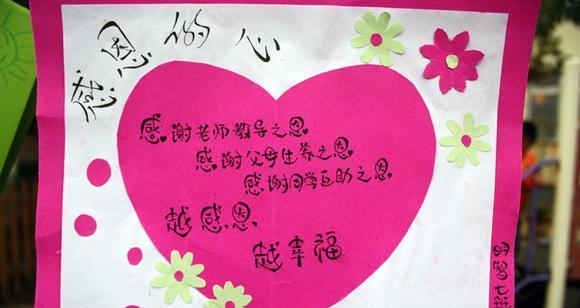 感恩的心
感谢老师教导之恩
感谢父母生养之恩
感谢同学互助之恩
越感恩
越幸福